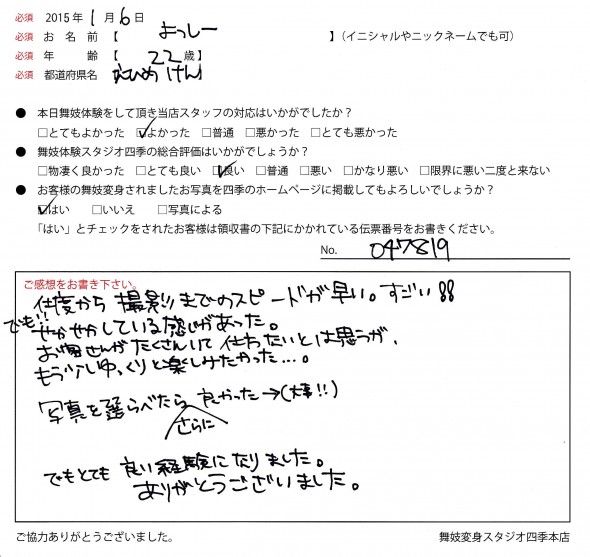 必須 2015年 1月 6日
必須 お名前【 よっしー 】（イニシャルやニックネームでも可）
必須 年齢【 22歳】
必須 都道府県名 えひめけん
● 本日舞妓体験をして頂き当店スタッフの対応はいかがでしたか？
□とてもよかった ☑よかった □普通 □悪かった □とても悪かった
● 舞妓体験スタジオ四季の総合評価はいかがでしょうか？
□物凄く良かった □とても良い ☑良い □普通 □悪い □かなり悪い □限界に悪い二度と来ない
● お客様の舞妓変身されましたお写真を四季のホームページに掲載してもよろしいでしょうか？
☑はい □いいえ □写真による
「はい」とチェックをされたお客様は領収書の下記にかかれている伝票番号をお書きください。
No. 047819
ご感想をお書き下さい。
仕度から撮影までのスピードが早い。すごい!!
でも!! せかせかしている感じがあった。
お客さんがたくさんいて仕方ないとは思うが、
もう少しゆっくりと楽しみたかった…。
写真を選らべたら 良かった→(大事!!)
さらに
でもとても良い経験になりました。
ありがとうございました。
ご協力ありがとうございました。
舞妓変身スタジオ四季本店